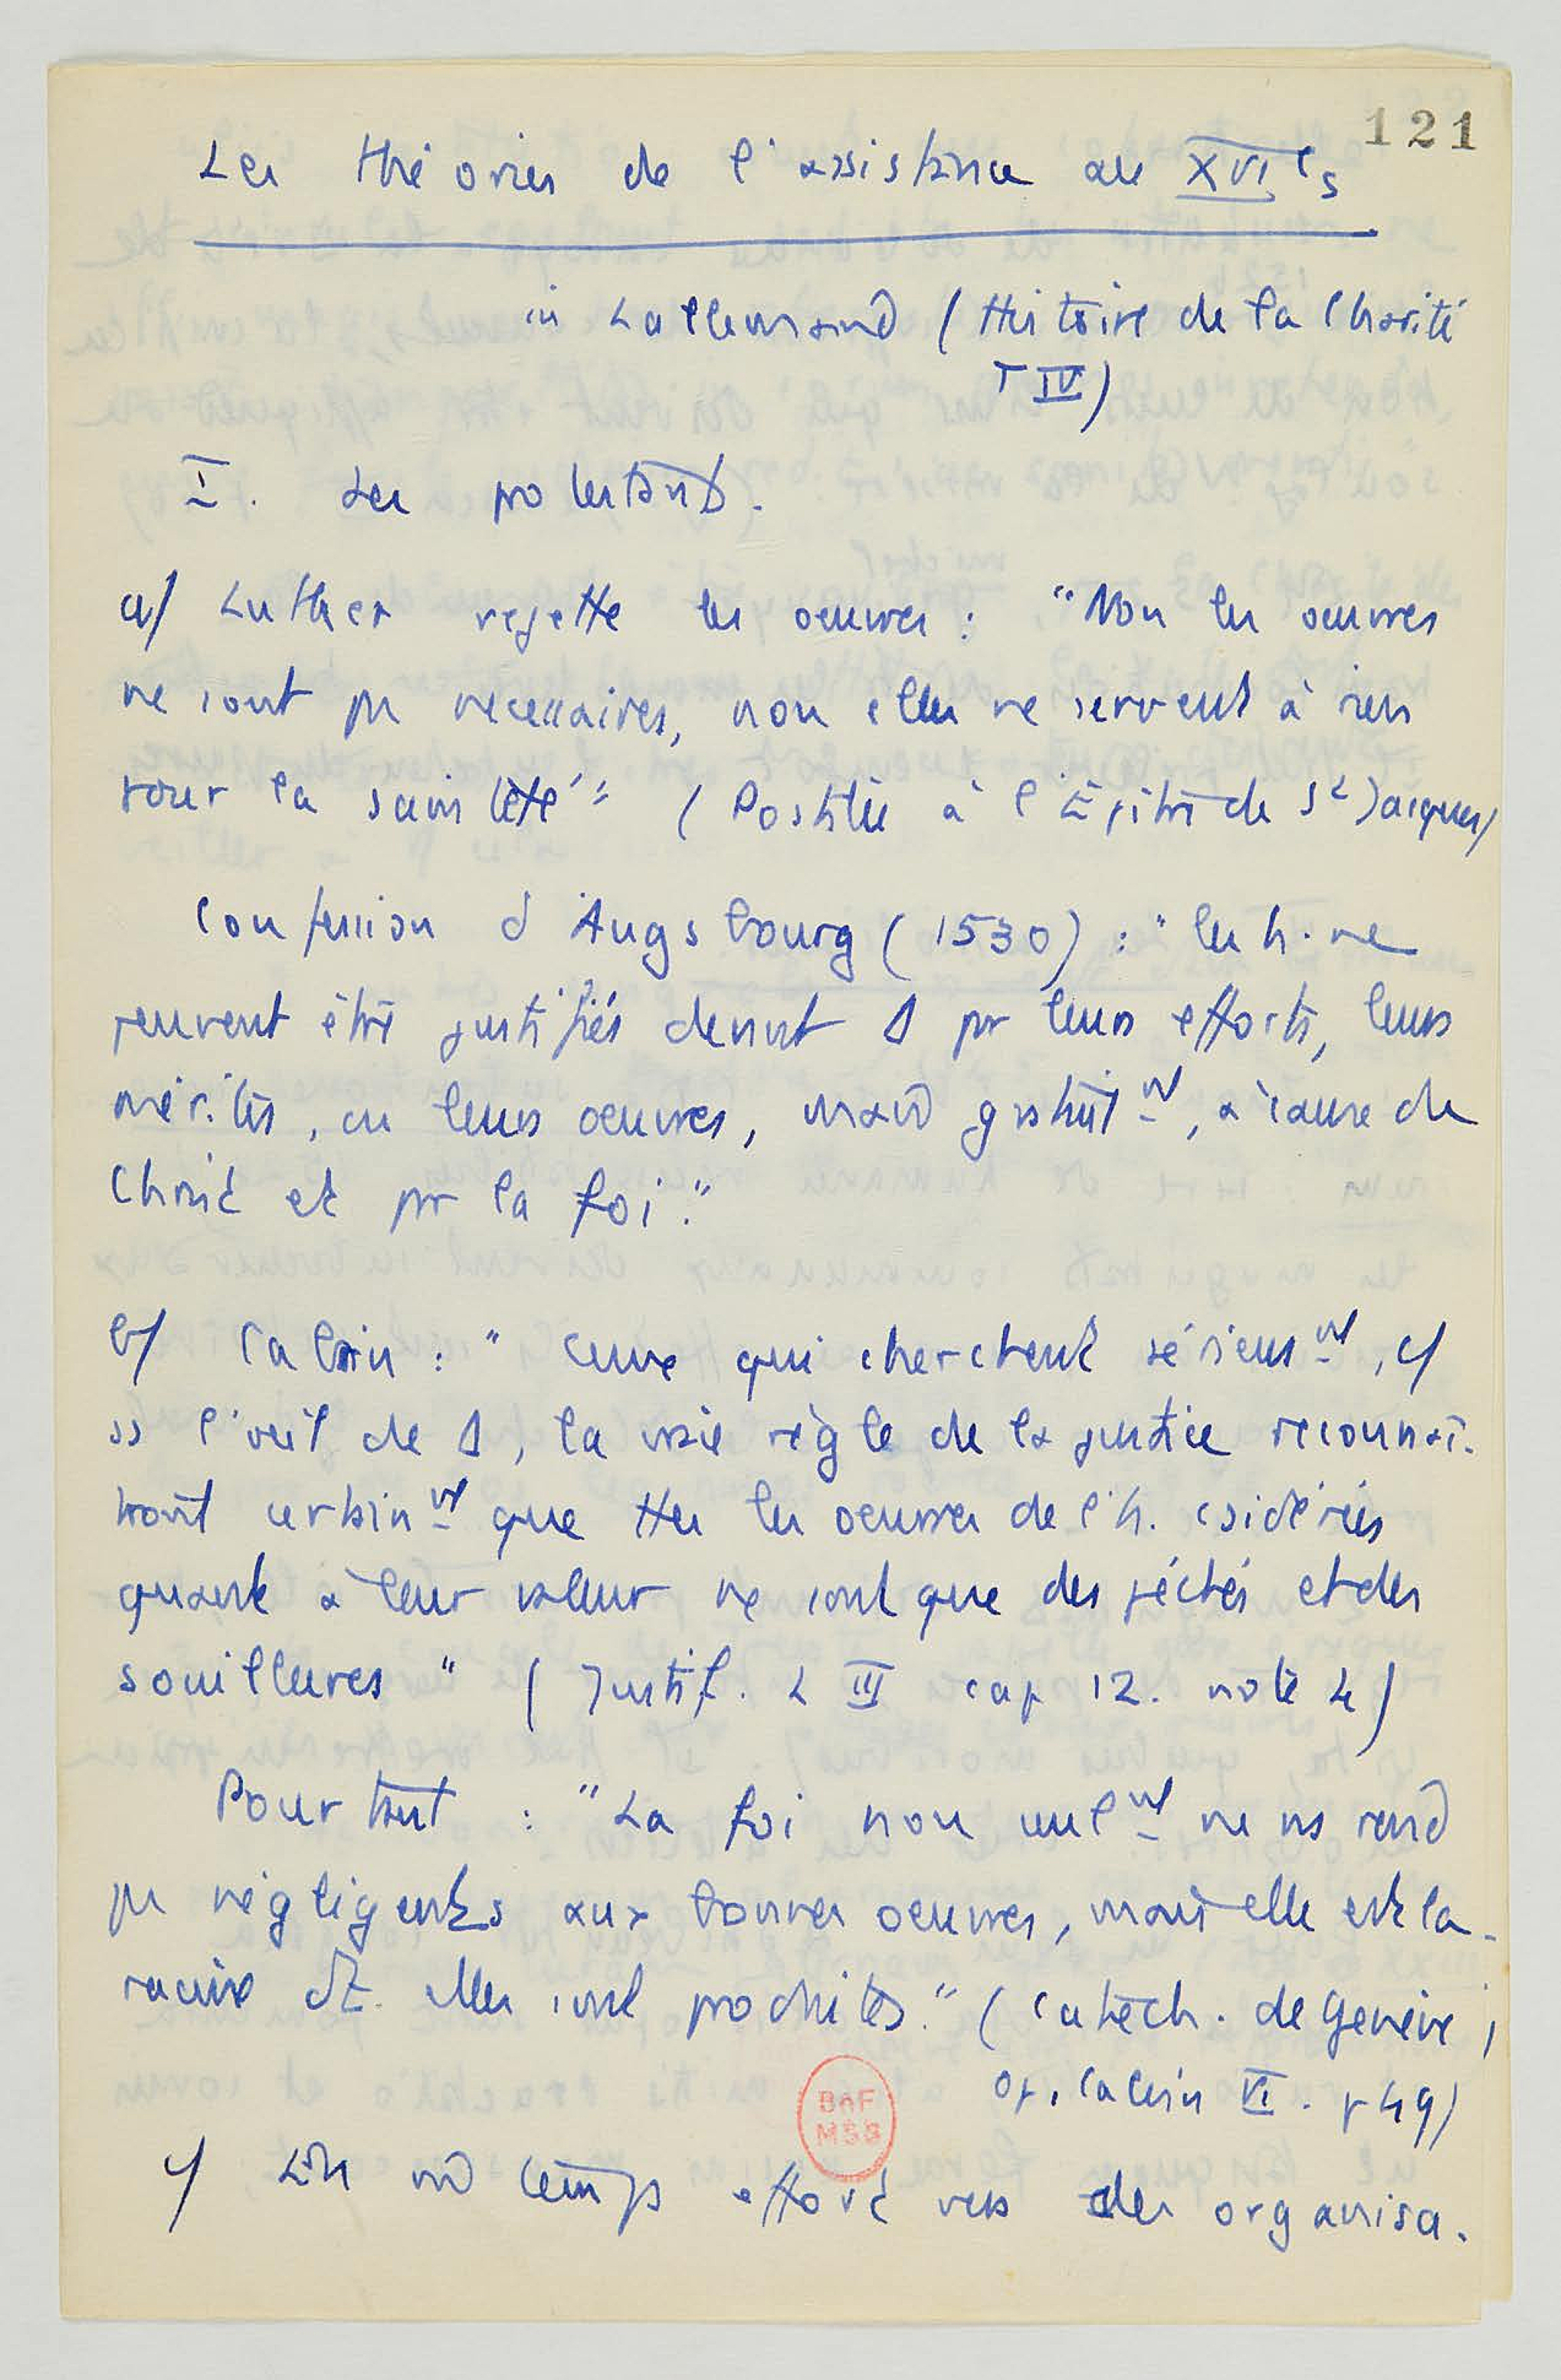 121
Les théories de l'assistance au XVIe s
in Lallemand (Histoire de la Charité
T IV)
I. Les protestants.
a/ Luther rejette les oeuvres : "Non les oeuvres
ne sont pas necessaires, non elles ne servent à rien
pour la sainteté" (Postille à l'Épitre de St Jacques)
Confession d'Augsbourg (1530) : "les h. ne
peuvent être justifiés devant Δ par leurs efforts, leurs
mérites, ou leurs oeuvres, mais gratuitmt, à cause du
Christ et par la foi."
b/ Calvin : "Ceux qui cherchent sérieusmt, c/
ss l'oeil de Δ, la vraie règle de la justice reconnaî-
tront certainmt que ttes les oeuvres de l'h. csidérées
quant à leur valeur ne sont que des péchés et des
souillures" (Justif. L III cap 12. note 4)
Pourtant : "La foi non seulmt ne ns rend
pas négligents aux bonnes oeuvres, mais elle est la
racine dt elles sont produites." (Catéch. de Genève ;
Op. Calvin VI. p 49)
c/ En md temps effort vers des organisa-
BnF
MSS